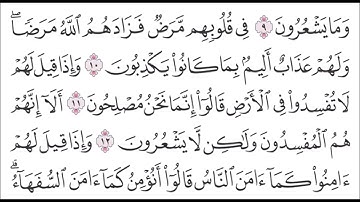 وَمَا يَشْعُرُونَ ٩ فِى قُلُوبِهِم مَّرَضٌ فَزَادَهُمُ ٱللَّهُ مَرَضًاۖ
وَلَهُمْ عَذَابٌ أَلِيمٌۢ بِمَا كَانُوا۟ يَكْذِبُونَ ١٠ وَإِذَا قِيلَ لَهُمْ
لَا تُفْسِدُوا۟ فِى ٱلْأَرْضِ قَالُوٓا۟ إِنَّمَا نَحْنُ مُصْلِحُونَ ١١ أَلَآ إِنَّهُمْ
هُمُ ٱلْمُفْسِدُونَ وَلَـٰكِن لَّا يَشْعُرُونَ ١٢ وَإِذَا قِيلَ لَهُمْ
ءَامِنُوا۟ كَمَآ ءَامَنَ ٱلنَّاسُ قَالُوٓا۟ أَنُؤْمِنُ كَمَآ ءَامَنَ ٱلسُّفَهَآءُۗ